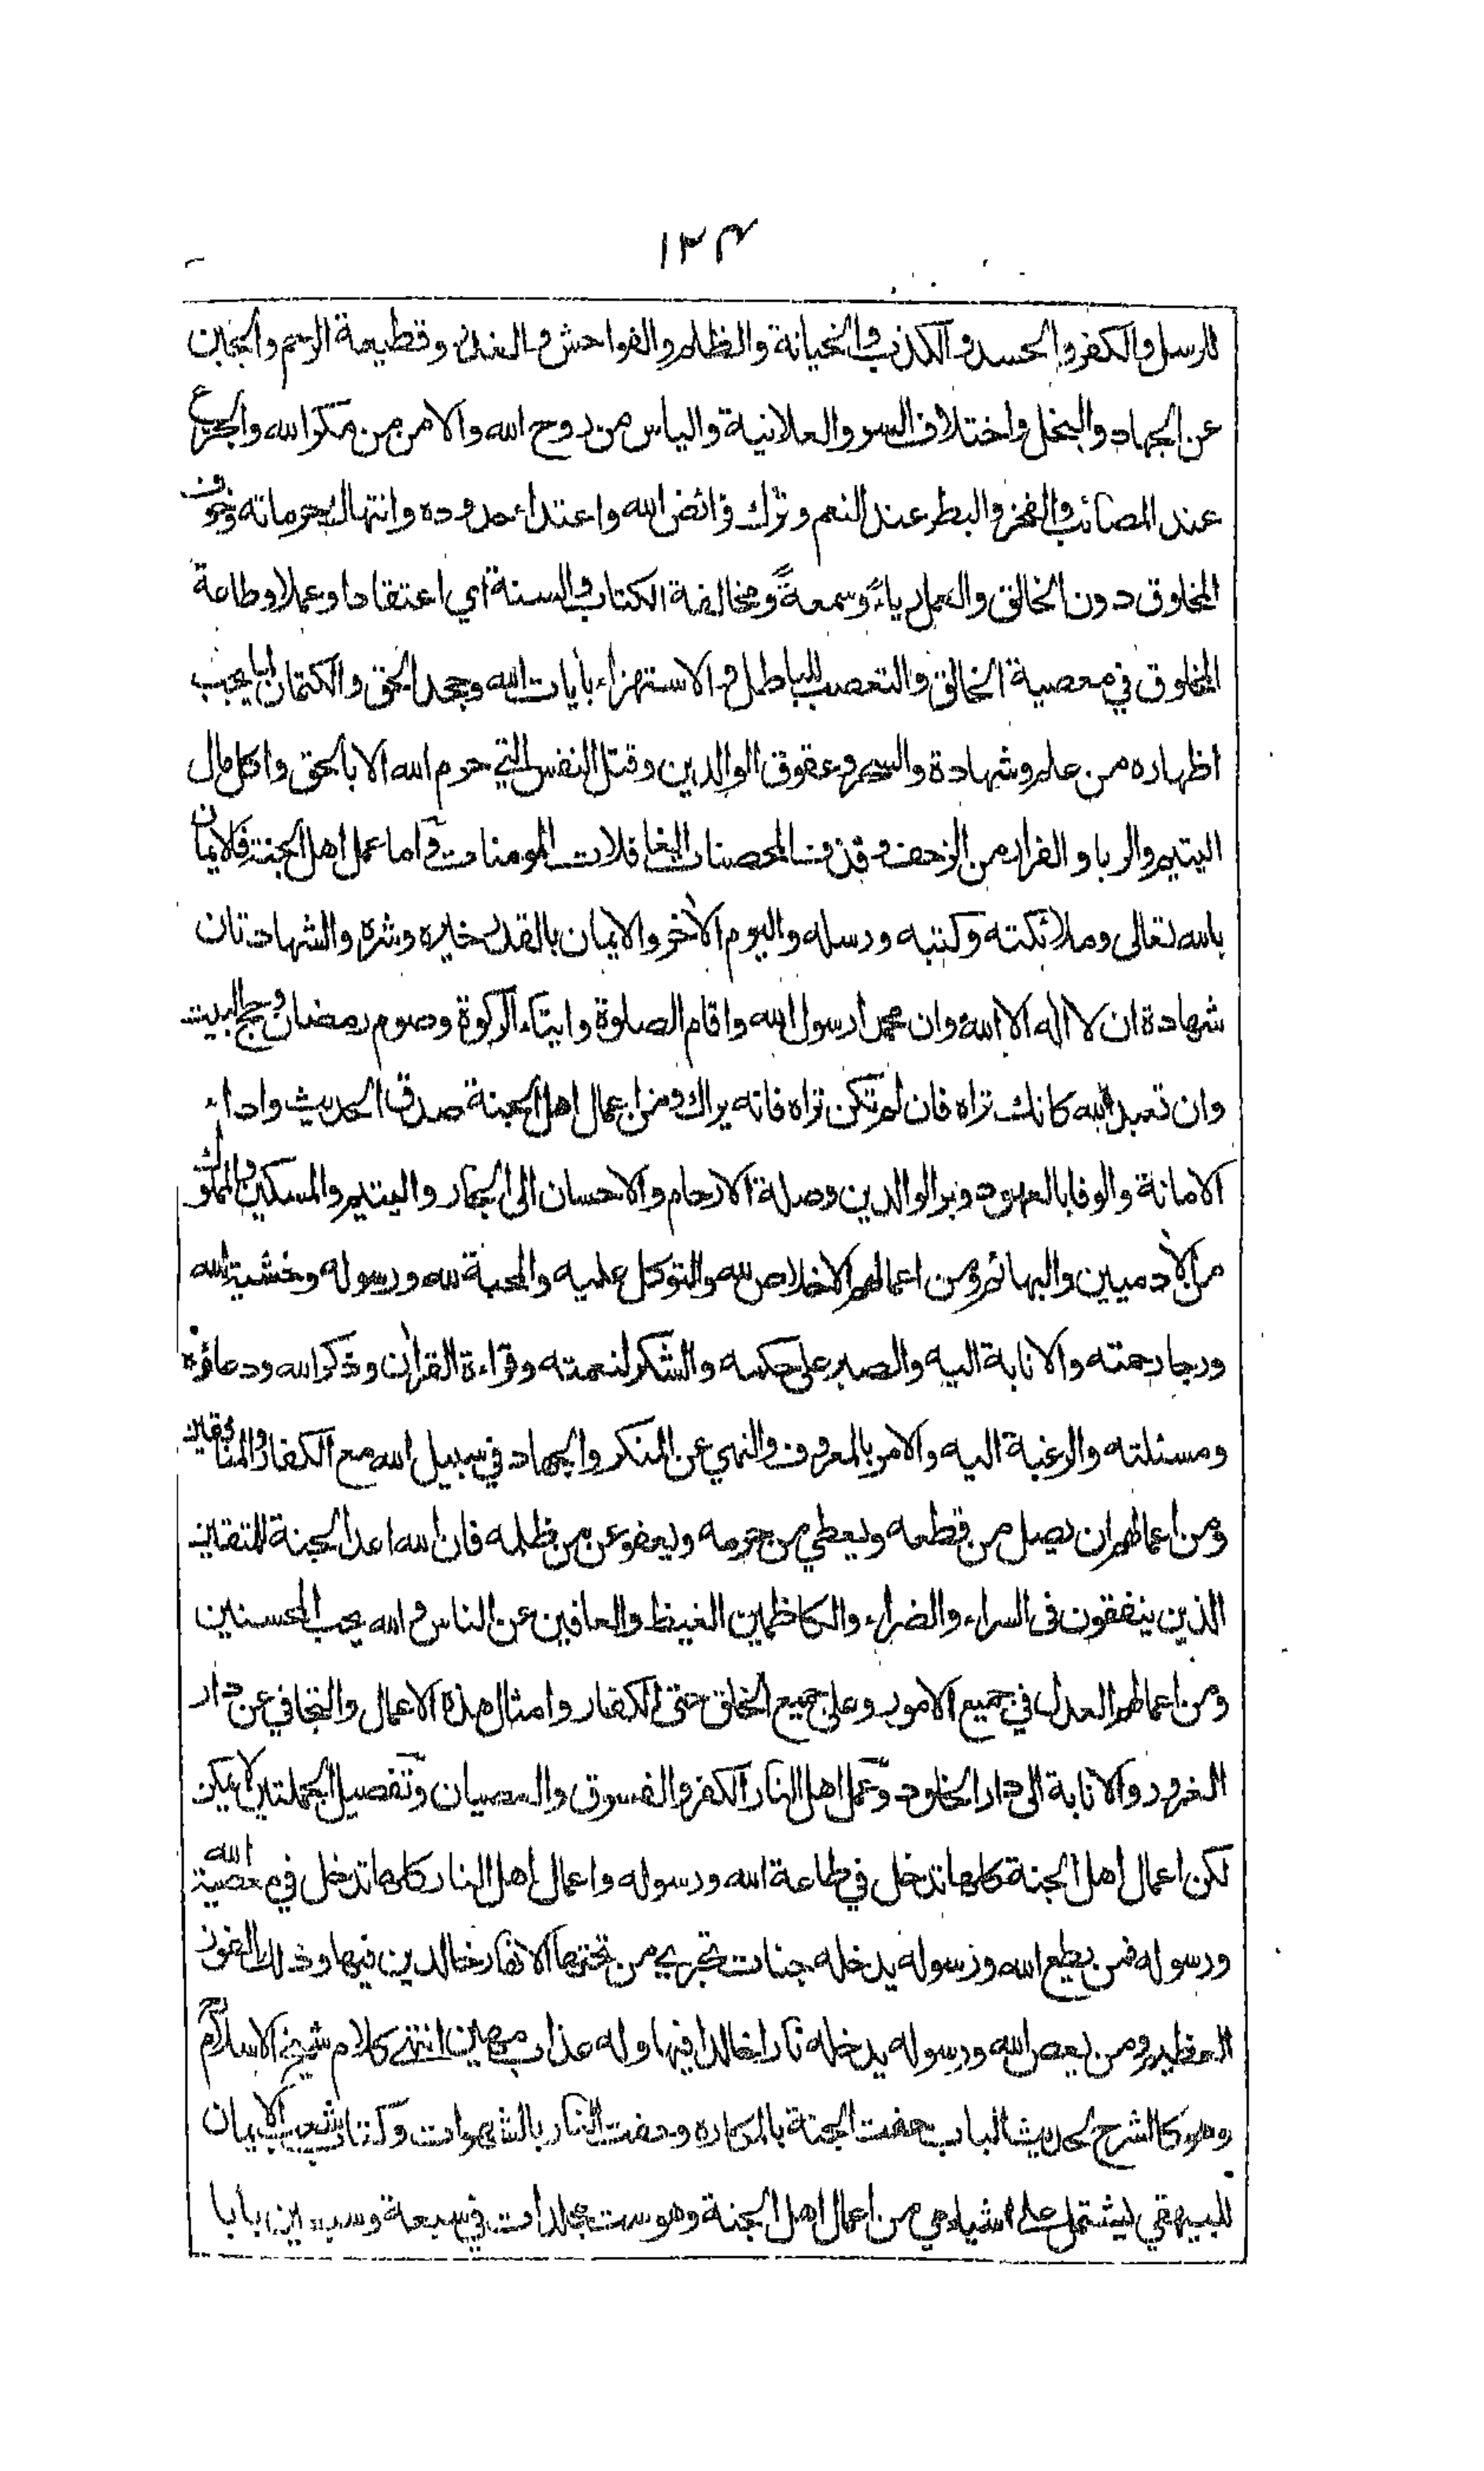 ١٢٣
للرسل والكفر والحسد والكذب والخيانة والظلم والفواحش والغدر وقطيعة الرحم والجبن
عن الجهاد والبخل واختلاف السر والعلانية والياس من روح الله والامن من مكر الله والجزع
عند المصائب والفخر والبطر عند النعم وترك فرائض الله واعتداء حدوده وانتهاك حرماته وخوف
المخلوق دون الخالق والعمل رياءً وسمعةً ومخالفة الكتاب والسنة اي اعتقادا وعملا وطاعة
المخلوق في معصية الخالق والتعصب للباطل والاستهزاء بأيات الله وجحد الحق والكتمان لما يجب
اظهاره من علم وشهادة والسحر وعقوق الوالدين وقتل النفس التي حرم الله الا بالحق واكل مال
اليتيم والربا والفرار من الزحف وقذف المحصنات الغافلات المومنات واما عمل اهل الجنة فالايمان
بالله تعالى وملائكته وكتبه ورسله واليوم الأخر والايمان بالقدر خيره وشره والشهادتان
شهادة ان لا اله الا الله وان محمدا رسول الله واقام الصلوة وايتاء الزكوة وصوم رمضان وحج البيت
وان تعبد الله كانك تراه فان لم تكن تراه فانه يراك ومن اعمال اهل الجنة صدق الحديث واداء
الامانة والوفا بالعهود وبر الوالدين وصلة الارحام والاحسان الى الجار واليتيم والمسكين والمملوك
من الأدميين والبهائم ومن اعمالهم الاخلاص لله والتوكل عليه والمحبة لله ورسوله وخشية الله
ورجا رحمته والانابة اليه والصبر على حكمه والشكر لنعمته وقراءة القران وذكر الله ودعاؤه
ومسئلته والرغبة اليه والامر بالمعروف والنهي عن المنكر والجهاد في سبيل الله مع الكفار والمنافقين
ومن اعمالهم ان يصل من قطعه ويعطي من حرمه ويعفو عن من ظلمه فان الله اعد الجنة للمتقين
الذين ينفقون فى السراء والضراء والكاظمين الغيظ والعافين عن الناس والله يحب المحسنين
ومن اعمالهم العدل في جميع الامور وعلى جميع الخلق حتى الكفار وامثال هذه الاعمال والتجافي عن دار
الغرور والانابة الى دار الخلود وعمل اهل النار الكفر والفسوق والعصيان وتفصيل الجملتين لا يمكن
لكن اعمال اهل الجنة كلها تدخل في طاعة الله ورسوله واعمال اهل النار كلها تدخل في معصية الله
ورسوله فمن يطع الله ورسوله يدخله جنات تجري من تحتها الانهار خالدين فيها وذلك الفوز
العظيم ومن يعص الله ورسوله يدخله نارا خالدا فيها وله عذاب مهين انتهى كلام شيخ الاسلام
وهو كالشرح لحديث الباب حفت الجنة بالمكاره وحفت النار بالشهوات وكتاب شعب الايمان
للبيهقي يشتمل على اشياء هي من اعمال اهل الجنة وهو ست مجلدات في سبعة وسبعين بابا